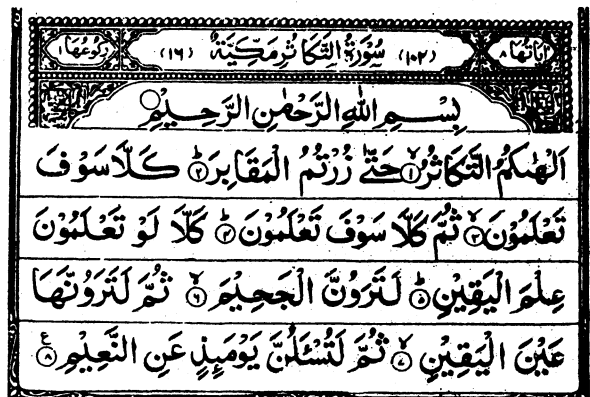 اٰیَاتُهَا ٨ (١٠٢) سُوْرَةُ التَّكَاثُرِ مَكِّيَّةٌ (١٦) رُكُوْعُهَا ١
بِسْمِ اللهِ الرَّحْمٰنِ الرَّحِيْمِ
اَلْهٰىكُمُ التَّكَاثُرُ ۙ﴿١﴾ حَتّٰى زُرْتُمُ الْمَقَابِرَ ؕ﴿٢﴾ كَلَّا سَوْفَ
تَعْلَمُوْنَ ۙ﴿٣﴾ ثُمَّ كَلَّا سَوْفَ تَعْلَمُوْنَ ؕ﴿٤﴾ كَلَّا لَوْ تَعْلَمُوْنَ
عِلْمَ الْيَقِيْنِ ؕ﴿٥﴾ لَتَرَوُنَّ الْجَحِيْمَ ۙ﴿٦﴾ ثُمَّ لَتَرَوُنَّهَا
عَيْنَ الْيَقِيْنِ ۙ﴿٧﴾ ثُمَّ لَتُسْـَٔلُنَّ يَوْمَىِٕذٍ عَنِ النَّعِيْمِ ﴿٨﴾ ع